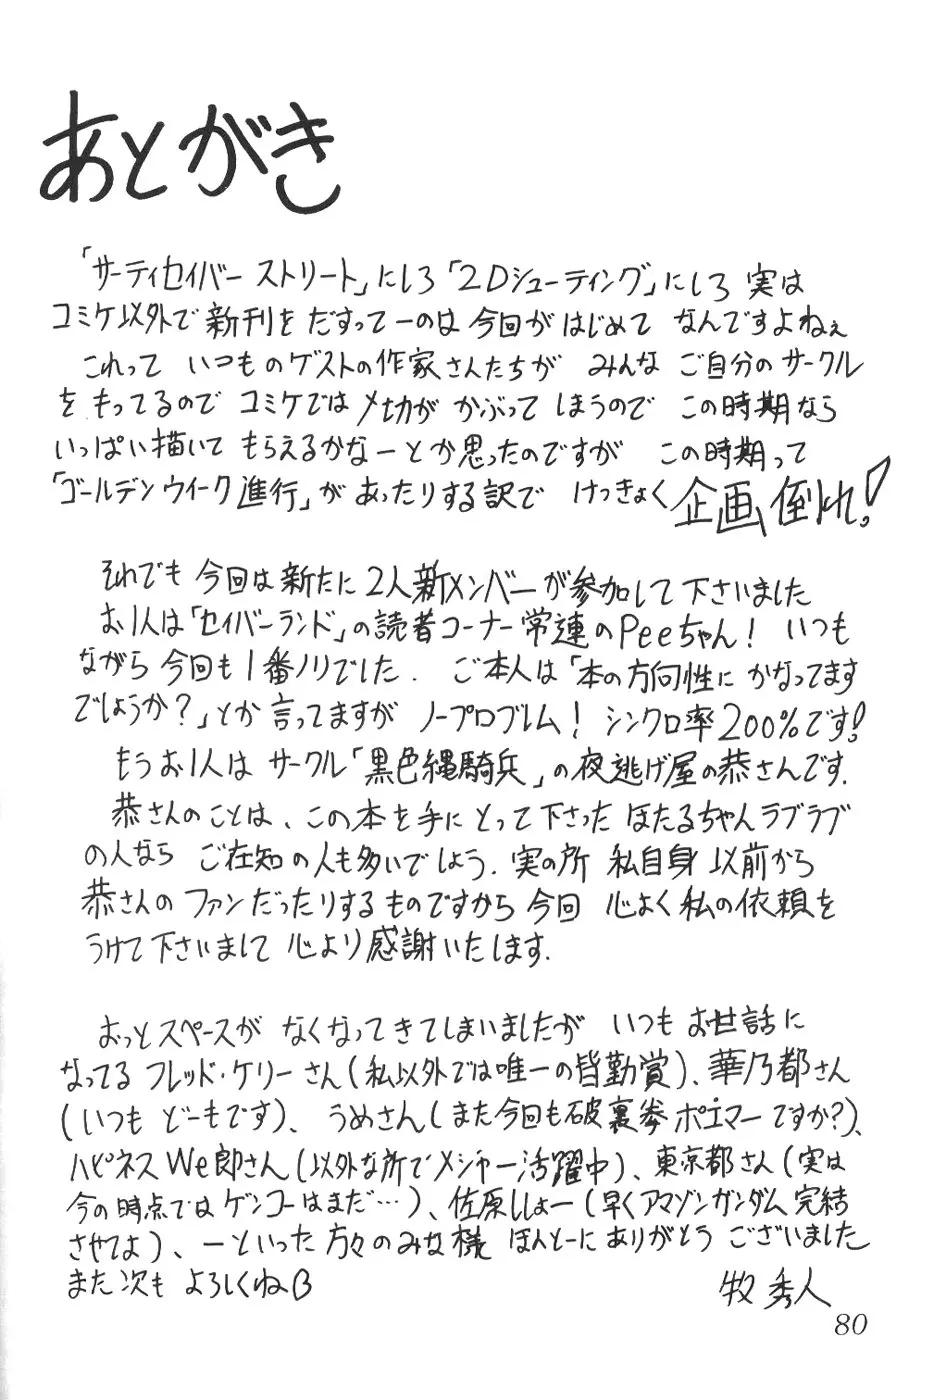 あとがき
「サーティセイバー ストリート」にしろ「2Dシューティング」にしろ 実は
コミケ以外で新刊を だすって一のは今回が はじめて なんですよねぇ
これって いつものゲストの作家さんたちが みんな ご自分のサークル
を もってるので コミケでは〆切が かぶって しまうので この時期なら
いっぱい描いて もらえるかなーとか思ったのですが この時期って
「ゴールデンウイーク進行」が あったりする訳で けっきょく企画倒れ!
それでも 今回は新たに 2人新メンバーが参加して下さいました
お1人は「セイバーランド」の読者コーナー常連のPeeちゃん! いつも
ながら 今回も1番ノリでした. ご本人は「本の方向性に かなってます
でしょうか?」とか 言ってますが ノープロブレム! シンクロ率200%です!
もうお1人は サークル「黒色縄騎兵」の夜逃げ屋の恭さんです.
恭さんのことは、この本を手にとって下さった ほたるちゃんラブラブ
の人なら ご存知の人も多いでしよう. 実の所 私自身 以前から
恭さんの ファンだったりするものですから 今回 心よく私の依頼を
うけて下さいまして 心より感謝いたします.
おっとスペースが なくなってきてしまいましたが いつも お世話に
なってる フレッド・ケリーさん(私以外では唯一の皆勤賞)、華乃都さん
(いつも どーもです)、 うめさん(また今回も破裏拳ポエマーですか?)、
ハピネスWe郎さん(以外な所でメジャー活躍中)、東京都さん(実は
今の時点では ゲンコーはまだ…)、佐原ししょー(早くアマゾンガンダム完結
させてよ)、ーといった方々のみな様 ほんとーにありがとう ございました
また次も よろしくねβ
牧 秀人
80